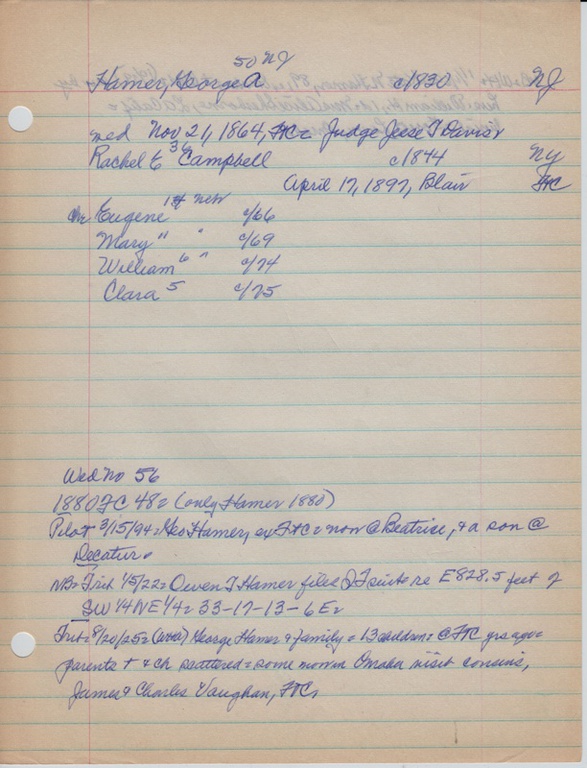 50 NJ
Hamer, George A c/1830 NJ
med Nov 21, 1864, FtC= Judge Jesse T Davis
36
Rachel E Campbell c/1844 NY
April 17, 1897, Blair FtC
Eugene 14 Neb c/66
Mary " " c/69
William 6 " c/74
Clara 5 c/75
Wed No 56
1880 FC 48= (only Hamer 1880)
Pilot 3/15/94= Geo Hamer, ex FtC= now @ Beatrice, & a son @
Decatur.
NB= Trib 1/5/22= Owen T Hamer files QT suit re E828.5 feet of
SW 1/4 NE 1/4= 33-17-13-6E=
Trib= 8/20/25= George Hamer & family= 13 children= @ FTC yrs ago=
parents + & ch scattered= some now in Omaha visit cousins,
James & Charles Vaughan, FTC=